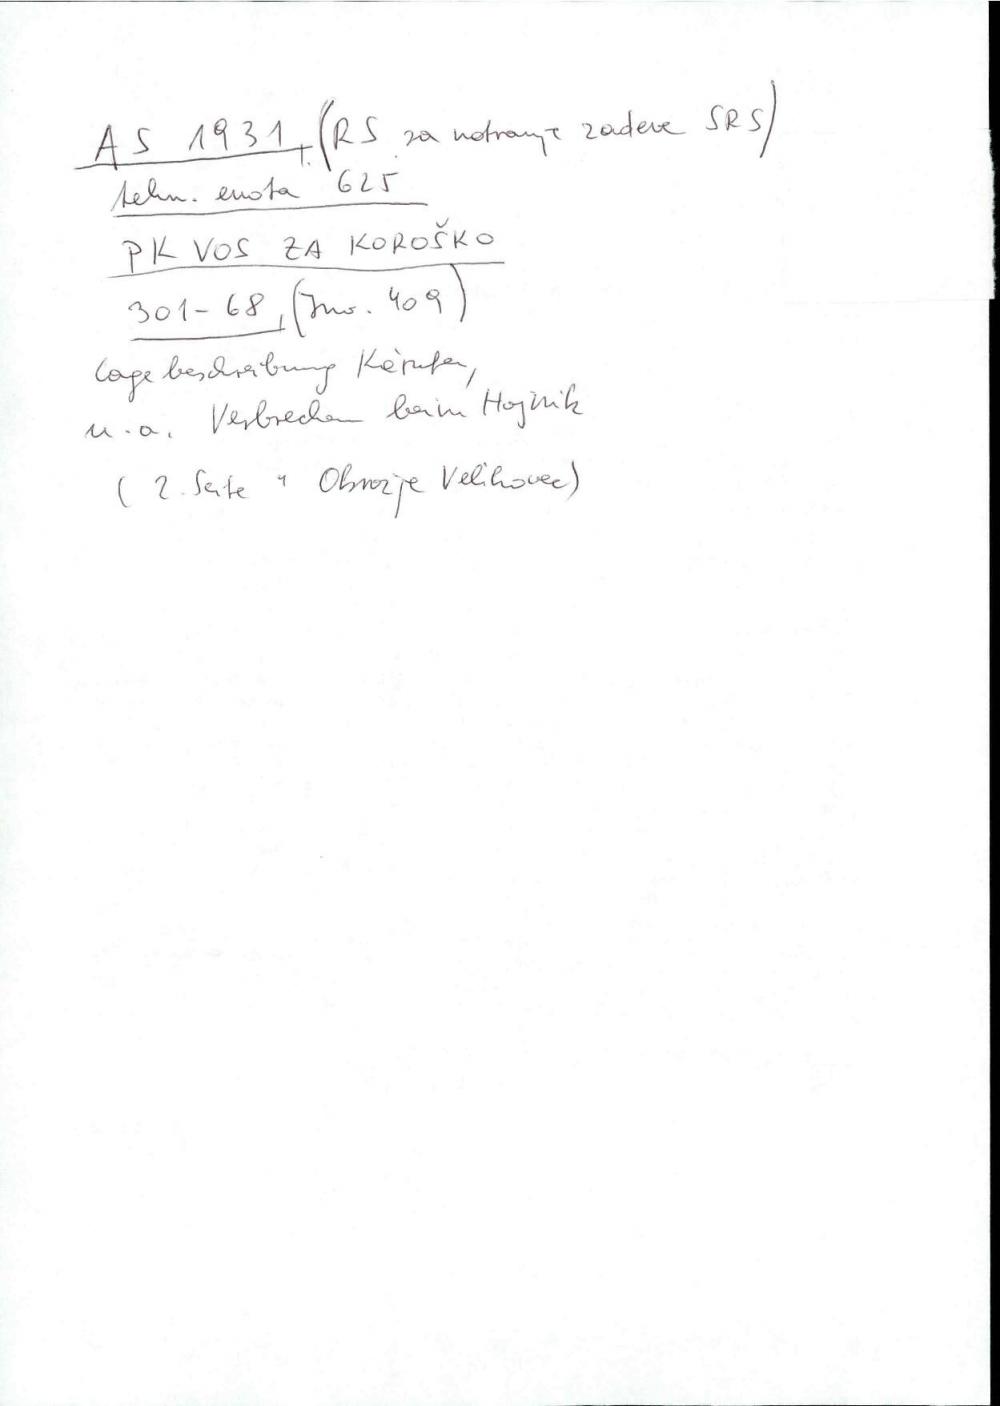 AS 1931, (RS za notranje zadeve SRS)
tehn. enota 625
PK VOS ZA KOROŠKO
301-68, (Inv. 409)
Lagebeschreibung Kärnten,
u.a. Verbrechen beim Hojnik
(2. Seite " Obmozje Velikovec)